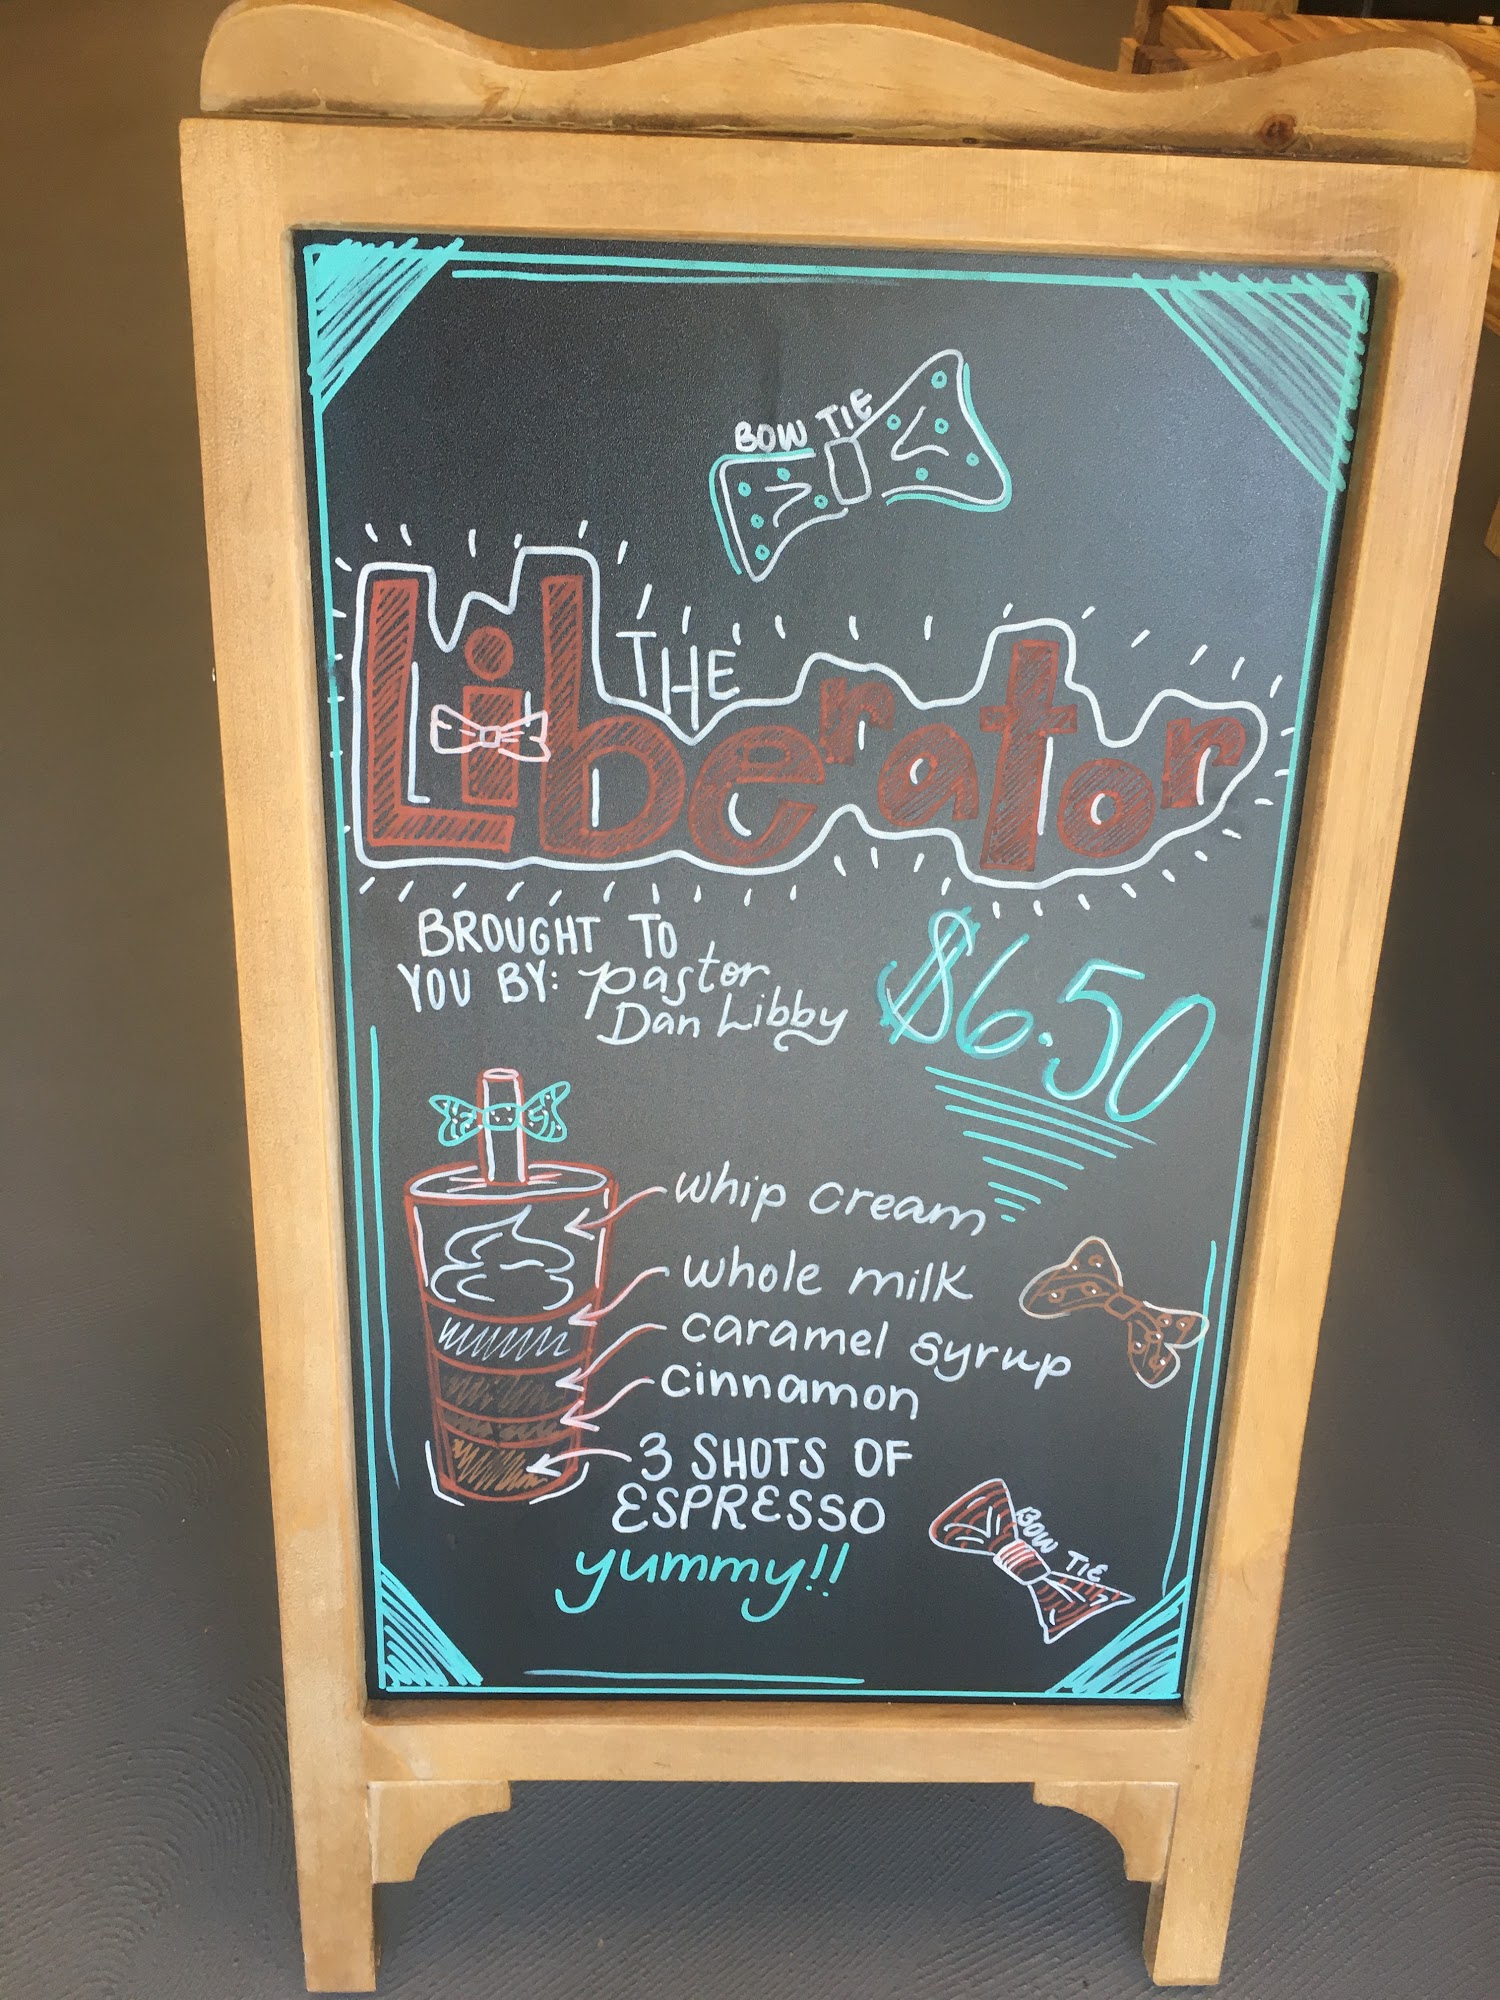 BOW TIE
THE
Liberator
BROUGHT TO
YOU BY: pastor
Dan Libby
$6.50
whip cream
whole milk
caramel syrup
cinnamon
3 SHOTS OF
ESPRESSO
yummy!!
BOW TIE